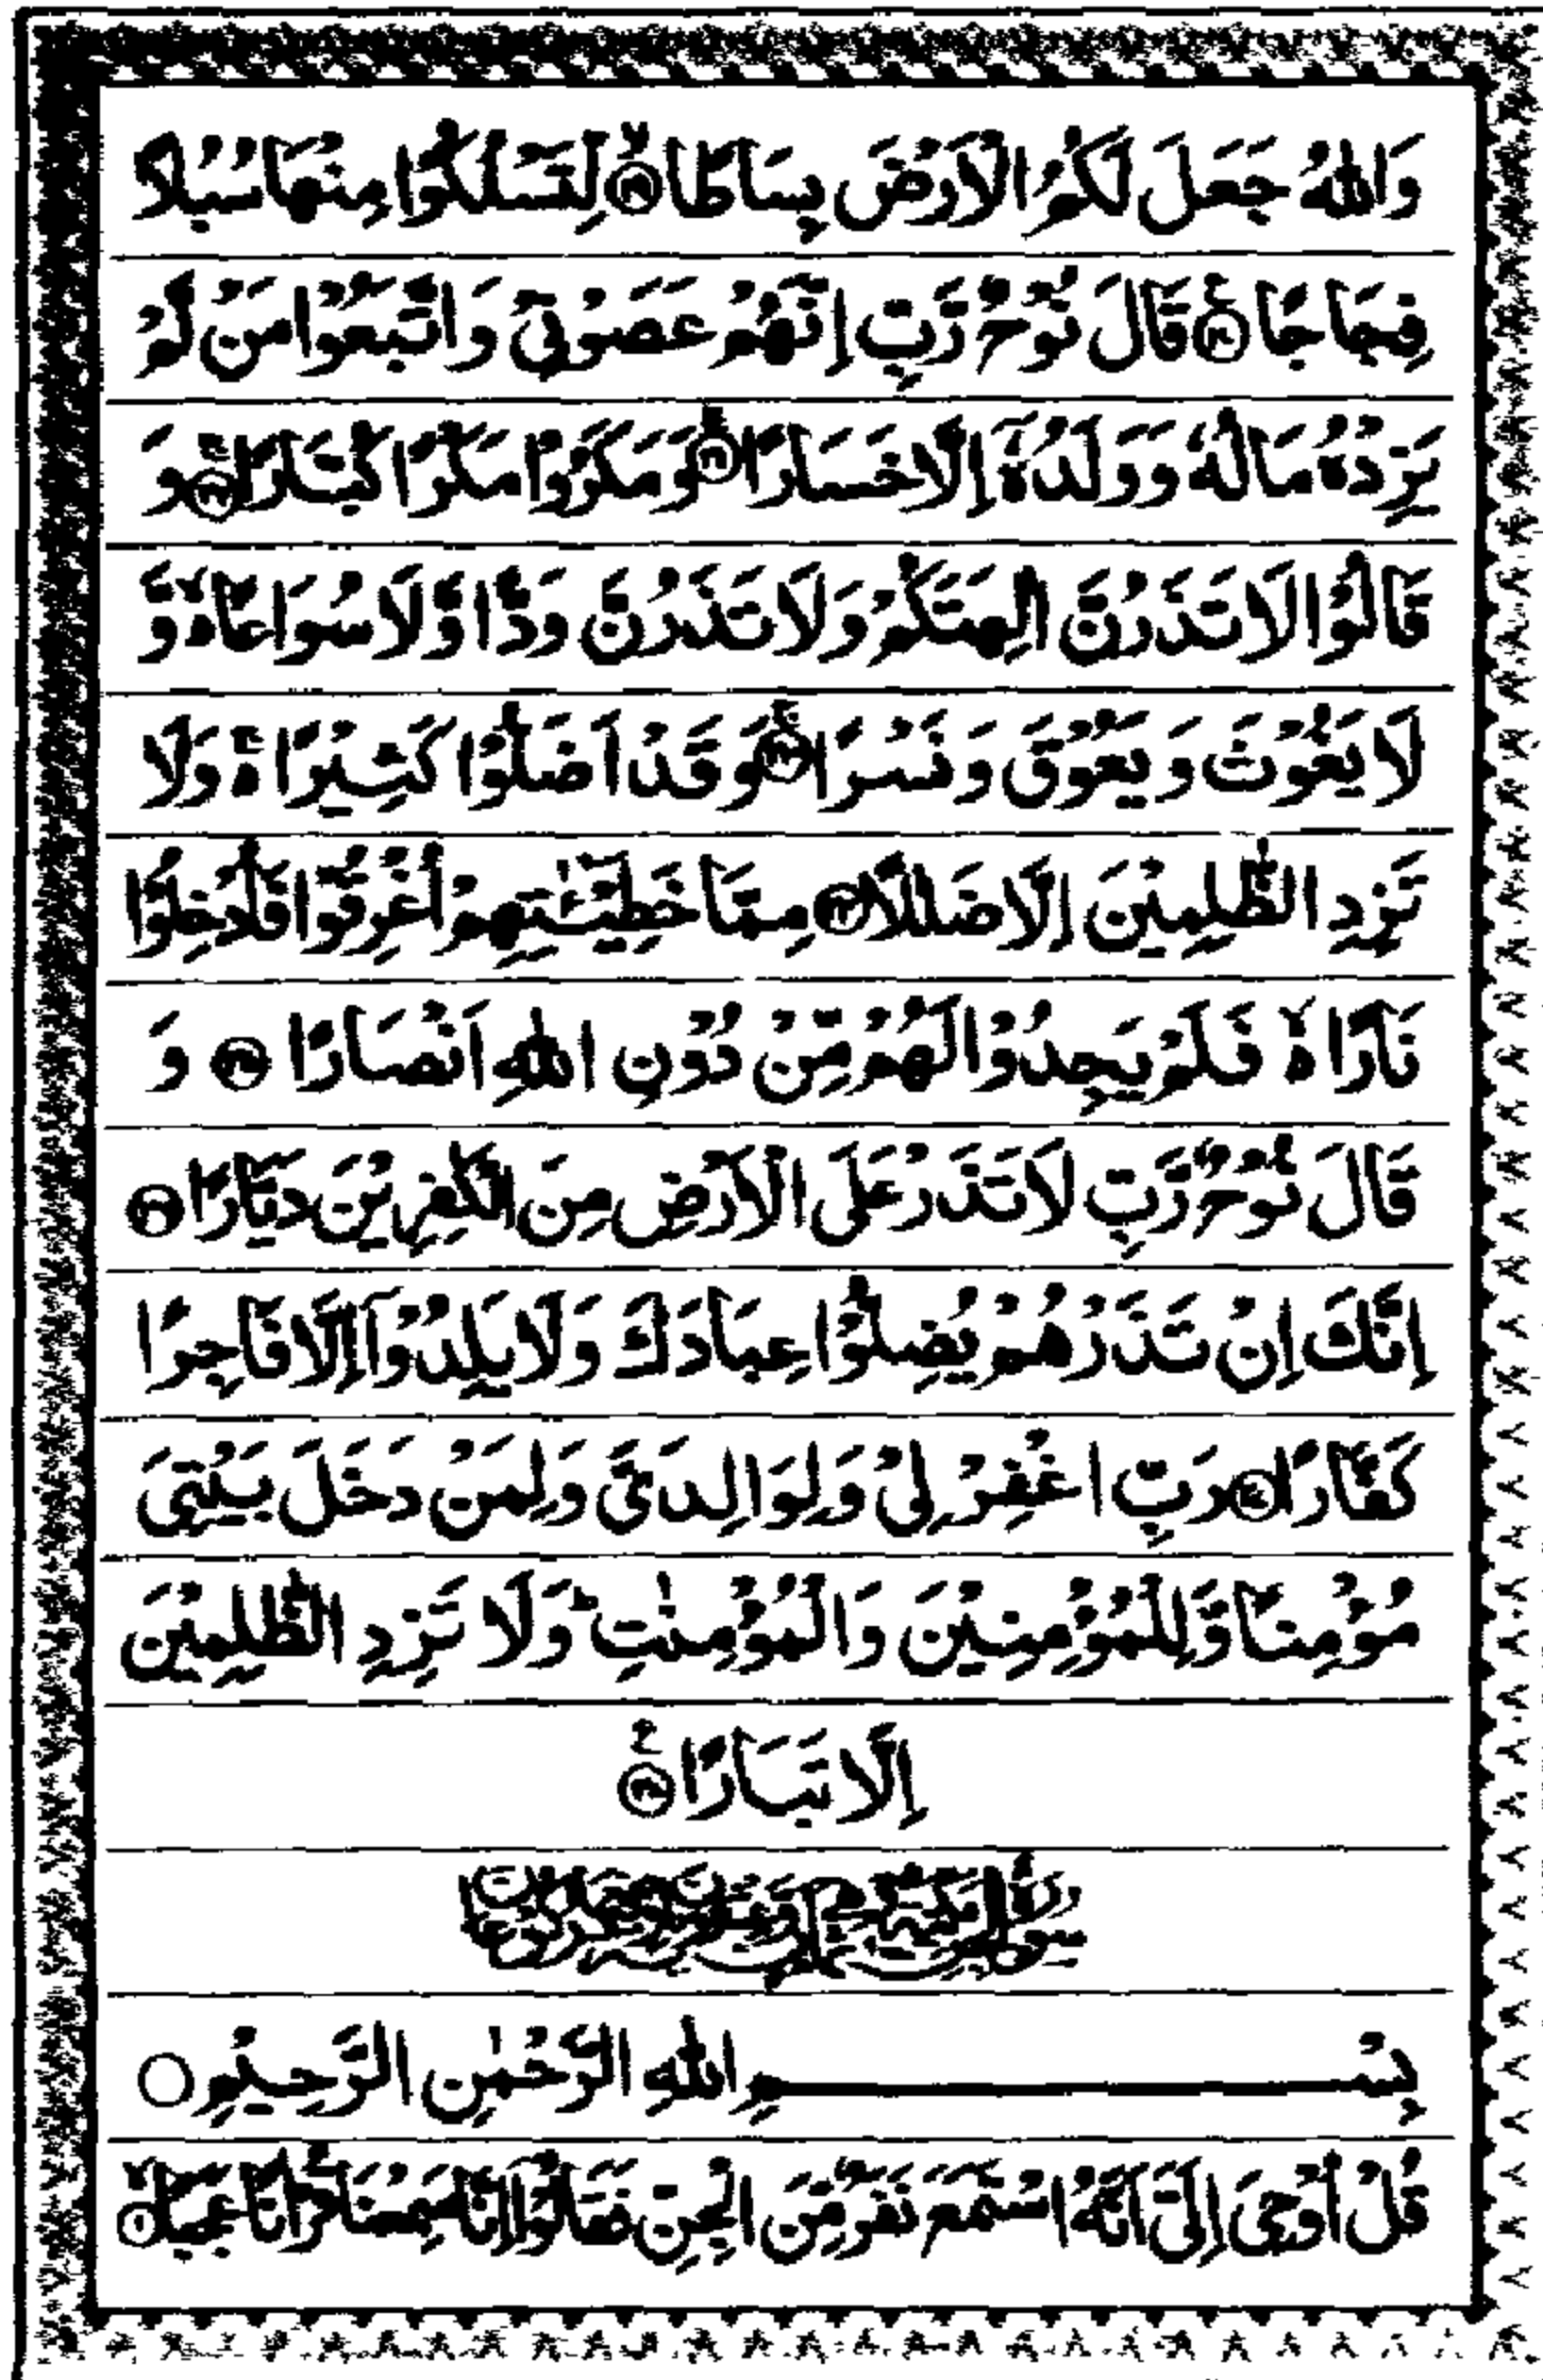 وَاللّٰهُ جَعَلَ لَكُمُ الْاَرْضَ بِسَاطًا ۙ﴿۱۹﴾ لِّتَسْلُكُوْا مِنْهَا سُبُلًا
فِجَاجًا ﴿۲۰﴾ۧ قَالَ نُوْحٌ رَّبِّ اِنَّهُمْ عَصَوْنِىْ وَاتَّبَعُوْا مَنْ لَّمْ
يَزِدْهُ مَالُهٗ وَوَلَدُهٗۤ اِلَّا خَسَارًا ﴿۲۱﴾ۚ وَمَكَرُوْا مَكْرًا كُبَّارًا ﴿۲۲﴾ۚ وَ
قَالُوْا لَا تَذَرُنَّ اٰلِهَتَكُمْ وَلَا تَذَرُنَّ وَدًّا وَّلَا سُوَاعًا ۙ۬ وَّ
لَا يَغُوْثَ وَيَعُوْقَ وَنَسْرًا ﴿۲۳﴾ۚ وَقَدْ اَضَلُّوْا كَثِيْرًا ۬ۚ وَلَا
تَزِدِ الظّٰلِمِيْنَ اِلَّا ضَلٰلًا ﴿۲۴﴾ مِمَّا خَطِيْٓـٰٔتِهِمْ اُغْرِقُوْا فَاُدْخِلُوْا
نَارًا ۙ۬ فَلَمْ يَجِدُوْا لَهُمْ مِّنْ دُوْنِ اللّٰهِ اَنْصَارًا ﴿۲۵﴾ وَ
قَالَ نُوْحٌ رَّبِّ لَا تَذَرْ عَلَى الْاَرْضِ مِنَ الْكٰفِرِيْنَ دَيَّارًا ﴿۲۶﴾
اِنَّكَ اِنْ تَذَرْهُمْ يُضِلُّوْا عِبَادَكَ وَلَا يَلِدُوْۤا اِلَّا فَاجِرًا
كَفَّارًا ﴿۲۷﴾ رَبِّ اغْفِرْ لِىْ وَلِوَالِدَىَّ وَلِمَنْ دَخَلَ بَيْتِىَ
مُؤْمِنًا وَّلِلْمُؤْمِنِيْنَ وَالْمُؤْمِنٰتِ ؕ وَلَا تَزِدِ الظّٰلِمِيْنَ
اِلَّا تَبَارًا ﴿۲۸﴾ۧ
بِسْمِ اللّٰهِ الرَّحْمٰنِ الرَّحِيْمِ ○
قُلْ اُوْحِىَ اِلَىَّ اَنَّهُ اسْتَمَعَ نَفَرٌ مِّنَ الْجِنِّ فَقَالُوْۤا اِنَّا سَمِعْنَا قُرْاٰنًا عَجَبًا ۙ﴿۱﴾